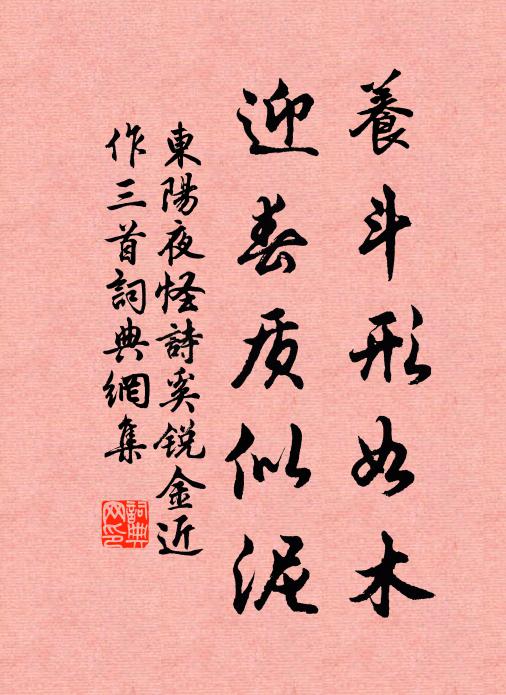 養斗形如木
迎春质似泥
東陽夜怪詩奚锐金近
作三首詞典網集
詞典
网印